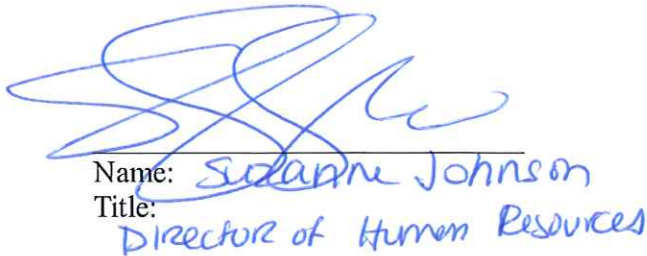 Name: Suzanne Johnson
Title:
Director of Human Resources